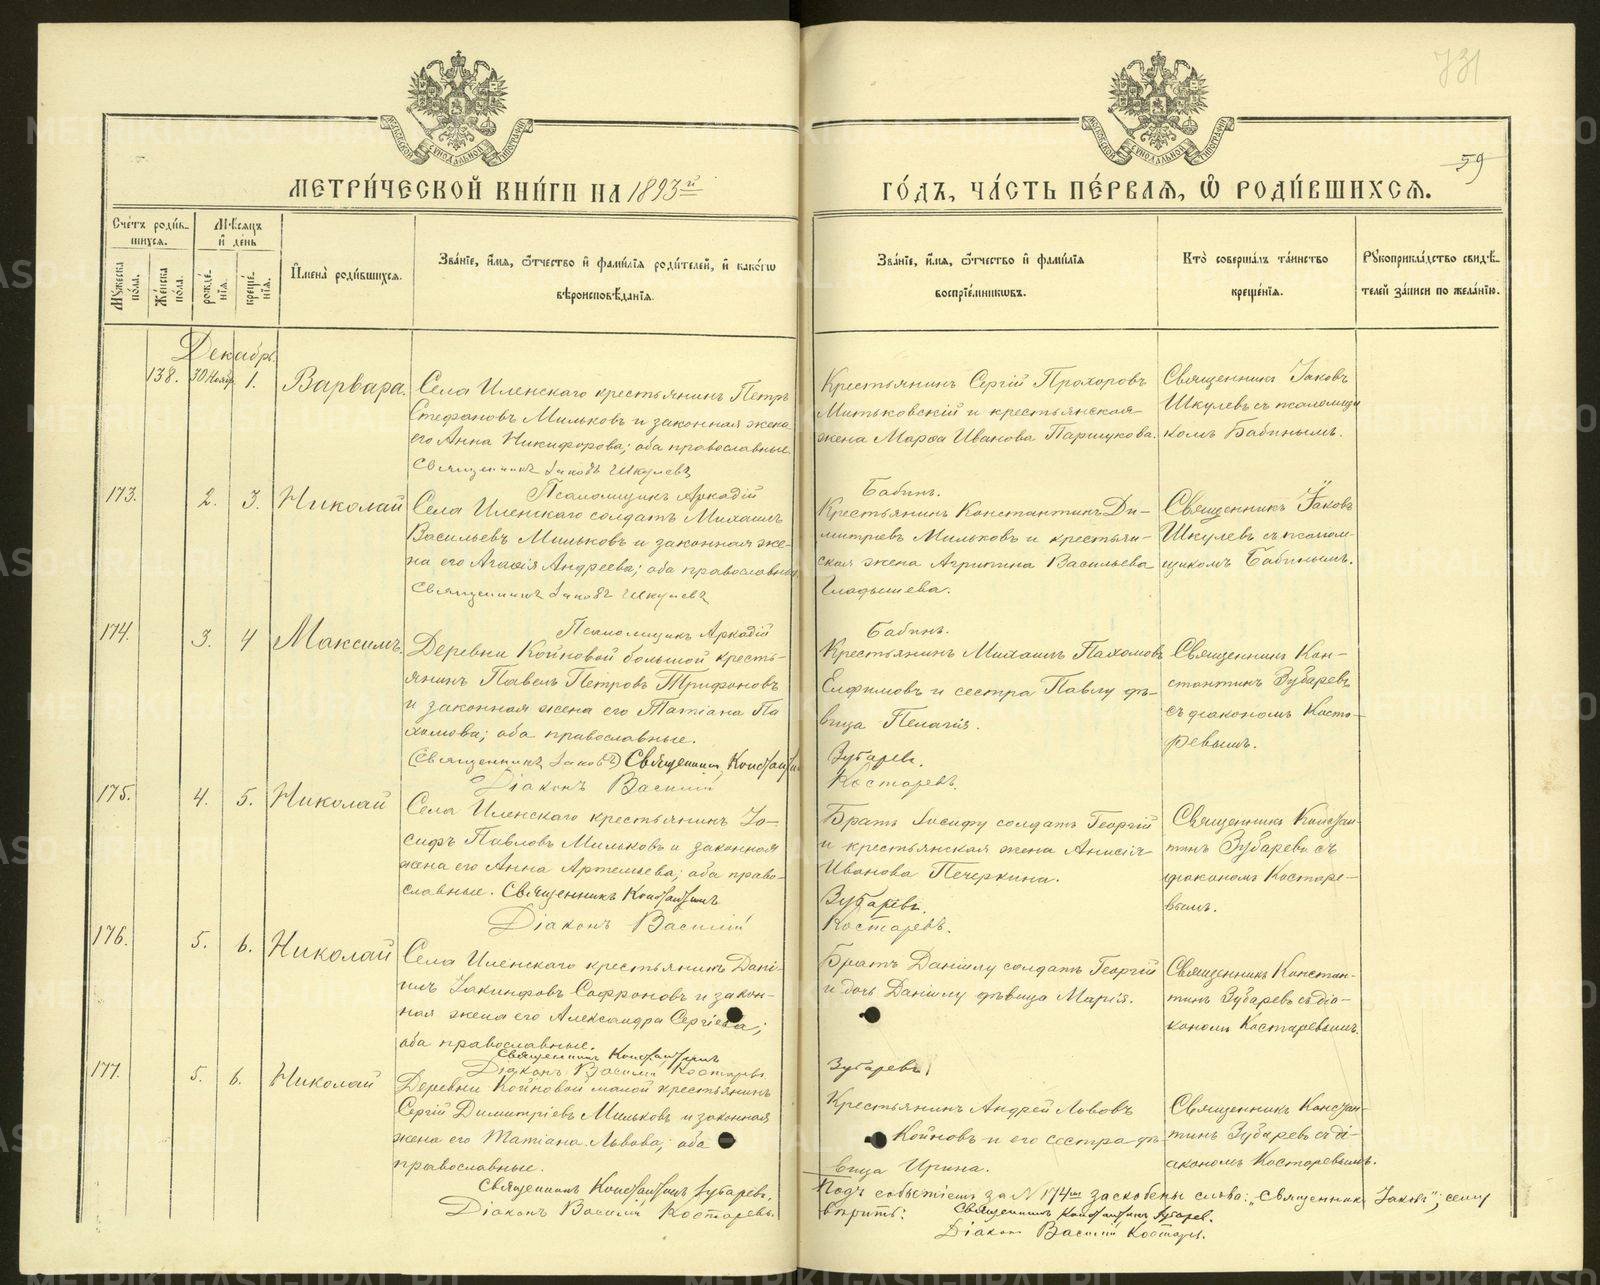 731
59
МЕТРИ́ЧЕСКОЙ КНИ́ГИ НА 1893й
ГО́ДЪ, ЧА́СТЬ ПЕ́РВАЯ, Ѿ РОДИ́ВШИХСЯ.
Сче́тъ роди́в-
шихся.
Му́жеска по́ла.
Же́нска по́ла.
Мѣ́сяцъ и де́нь
рожде́нїя.
креще́нїя.
И҆мена̀ роди́вшихся.
Зва́нїе, и҆́мя, ѻ҆́тчество и҆ фами́лїя роди́телей, и҆ како́гѡ
вѣроисповѣ́данїя.
Зва́нїе, и҆́мя, ѻ҆́тчество и҆ фами́лїя
воспрїе́мникѡвъ.
Кто̀ соверша́лъ та́инство
креще́нїя.
Рꙋкоприкла́дство свидѣ́-
телей за́писи по жела́нїю.
Декабрь.
138. 30 Нояб. 1. Варвара.
Села Иленскаго крестьянинъ Петръ
Стефановъ Мильковъ и законная жена
его Анна Никифорова; оба православные.
Священникъ Іаковъ Шкулевъ
Псаломщикъ Аркадій
Крестьянинъ Сергій Прохоровъ
Митьковскій и крестьянская
жена Марѳа Иванова Паршукова.
Бабинъ.
Священникъ Іаковъ
Шкулевъ съ псаломщи
комъ Бабинымъ.
173. 2. 3. Николай
Села Иленскаго солдатъ Михаилъ
Васильевъ Мильковъ и законная же-
на его Агаѳія Андреева; оба православные
Священникъ Іаковъ Шкулевъ
Псаломщикъ Аркадій
Крестьянинъ Константинъ Ди-
митріевъ Мильковъ и крестьян-
ская жена Агрипина Васильева
Гладышева.
Бабинъ.
Священникъ Іаковъ
Шкулевъ съ псалом-
щикомъ Бабинымъ.
174. 3. 4 Максимъ.
Деревни Койновой большой кресть-
янинъ Павелъ Петровъ Трифоновъ
и законная жена его Татіана Па
хомова; оба православные.
(Священникъ Іаковъ) Священникъ Константинъ
Діаконъ Василій
Крестьянинъ Михаилъ Пахомовъ
Елфимовъ и сестра Павлу дѣ-
вица Пелагія.
Зубаревъ.
Костаревъ.
Священникъ Кон-
стантинъ Зубаревъ
съ діакономъ Коста-
ревымъ.
175. 4. 5. Николай
Села Иленскаго крестьянинъ Іо-
сифъ Павловъ Мильковъ и законная
жена его Анна Артемьева; оба право-
славные. Священникъ Константинъ
Діаконъ Василій
Братъ Іосифу солдатъ Георгій
и крестьянская жена Анисія
Иванова Печеркина.
Зубаревъ.
Костаревъ.
Священникъ Констан-
тинъ Зубаревъ съ
діакономъ Костаре-
вымъ.
176. 5. 6. Николай
Села Иленскаго крестьянинъ Дані-
илъ Іакинфовъ Софроновъ и закон-
ная жена его Александра Сергіева;
оба православные.
Священникъ Константинъ
Діаконъ Василій Костаревъ.
Братъ Даніилу солдатъ Георгій
и дочь Даніилу дѣвица Марія.
Зубаревъ.
Священникъ Констан-
тинъ Зубаревъ съ діа-
кономъ Костаревымъ.
177. 5. 6. Николай
Деревни Койновой малой крестьянинъ
Сергій Димитріевъ Мильковъ и законная
жена его Татіана Львова; оба
православные.
Священникъ Константинъ Зубаревъ.
Діаконъ Василій Костаревъ.
Крестьянинъ Андрей Львовъ
Койновъ и его сестра дѣ-
вица Ирина.
Священникъ Констан-
тинъ Зубаревъ съ ді-
акономъ Костаревымъ.
Подъ событіемъ за № 174мъ заскобены слова: „Священникъ Іаковъ“; сему
вѣрить: Священникъ Константинъ Зубарев.
Діакон Василій Костарв.